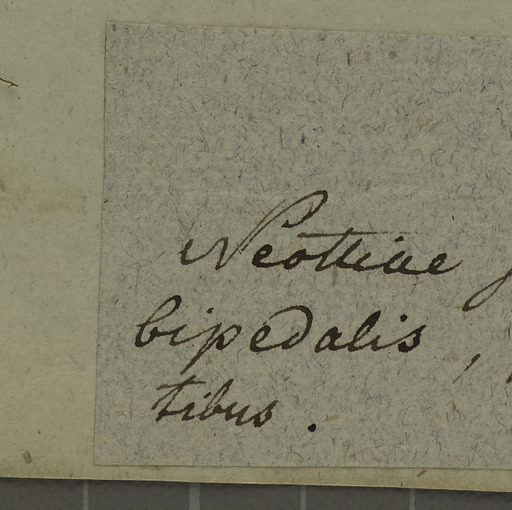 Neottiae
bipedalis,
tibus.